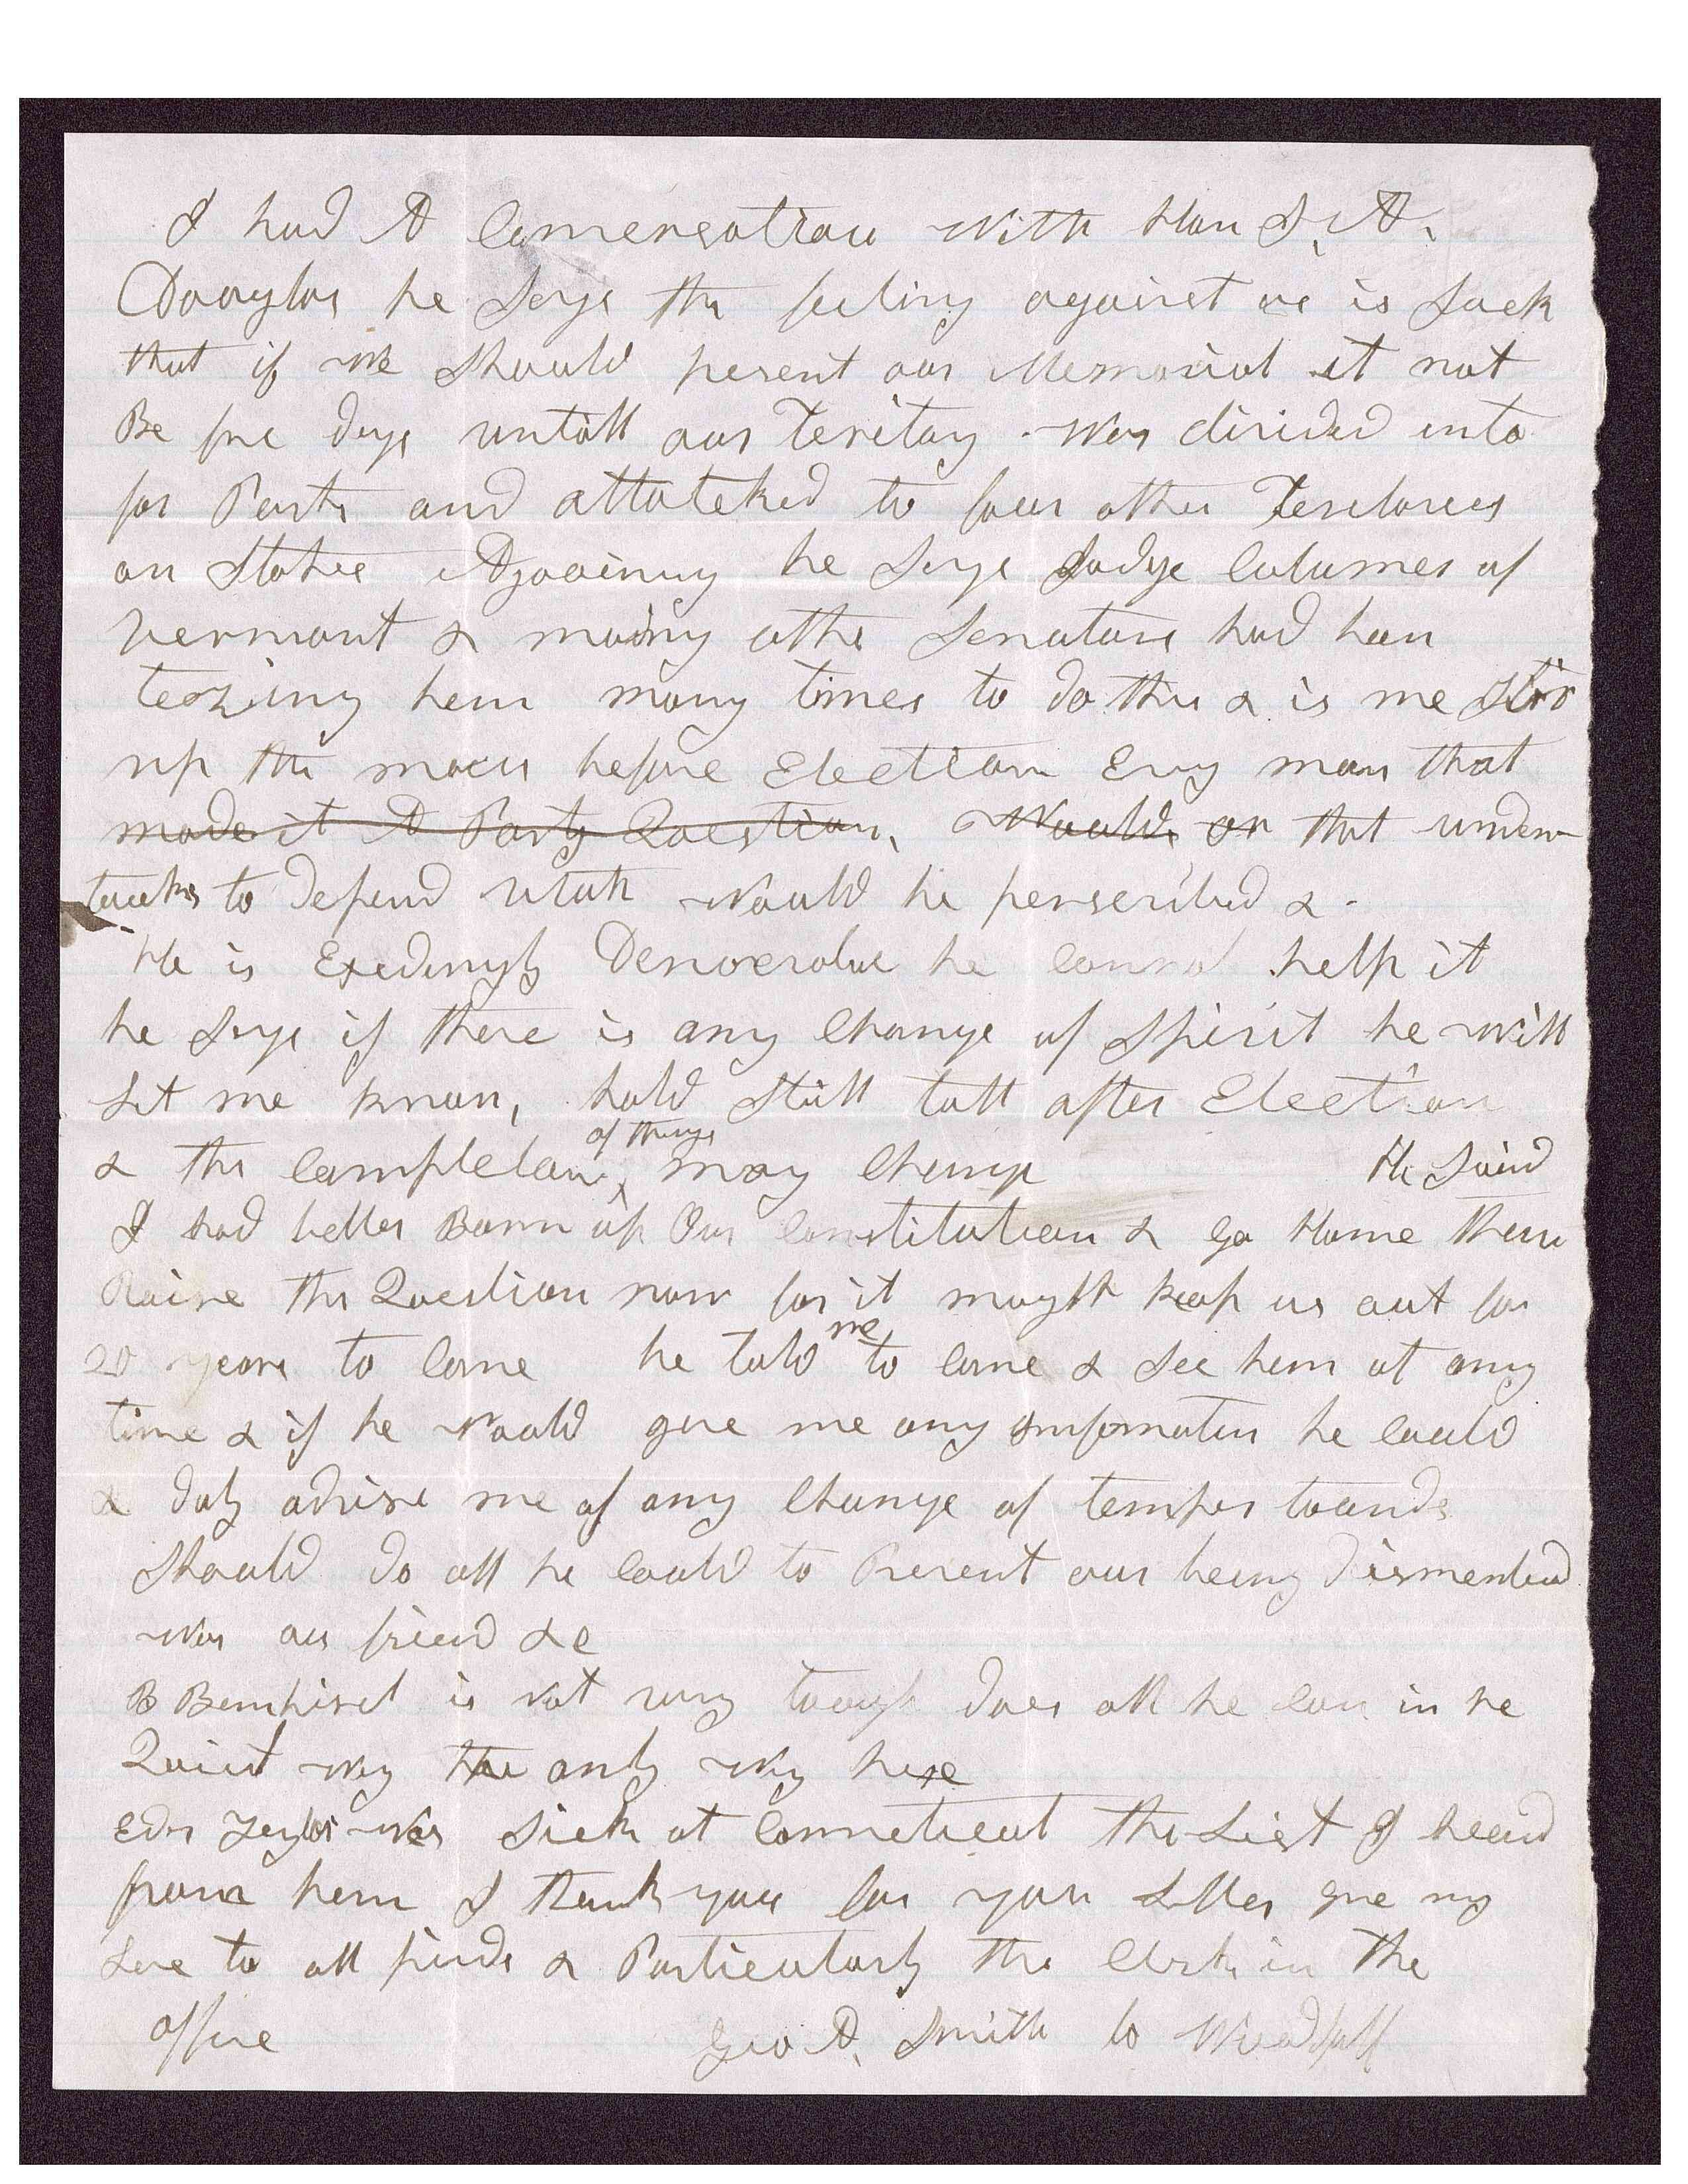 I had A Conversation With Hon S. A.
Douglas he Says the feeling against us is Such
that if we Should persent our Memorial it not
Be five days untill our Teritory was divided into
for Parts and attatched to four other Teritories
or States Ajoining he Says Judge Columer of
Vermont & mainy other Senators had ben
teazing hem many times to do this & is me Stir
up the mater before Election Evry man that
made it A Party Question, Would or that under
taeks to Defend utah would be perscribed &
He is Exedingly Democratic he cannot help it
he Says if there is any Change of Spirit he will
Let me know, hold Still till after Election
& the Complection of things may Change He Said
I had better Burn up Our Constitution & Go Home then
Raise the Question now for it myght keep us out for
20 years to Come he told me to Come & See hem at any
time & if he would give me any information he Could
& duly advise me of any Change of temper towards
Should do all he Could to Prevent our being dismembed
was our friend &c
B Bernhisel is not very tough does all he Can in he
Quiet way the only way here
Edr Taylor was Sick at Conneticut the Last I heard
from hem I thank you for your Letter give my
Love to all frinds & Particularly the Clerks in the
office Geo A. Smith to Woodruff